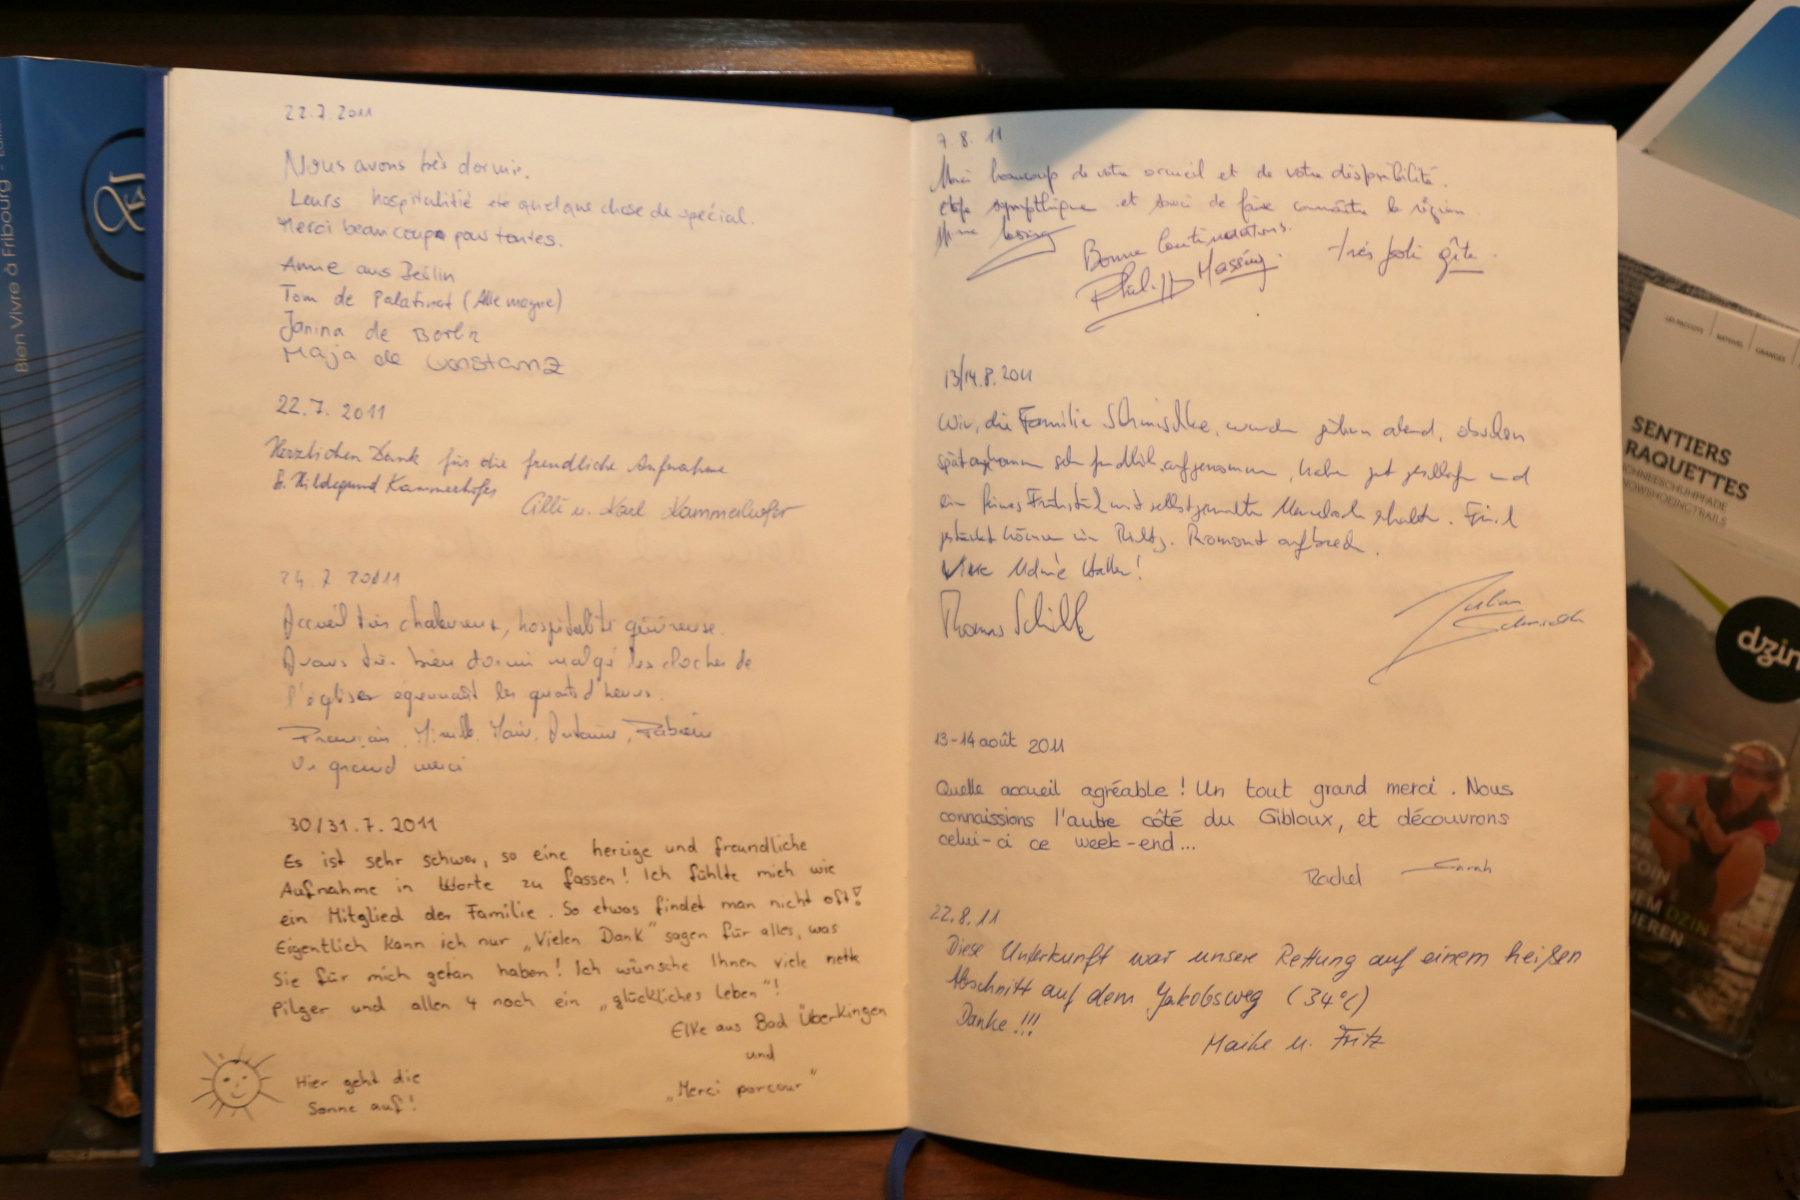 22.7.2011
Nous avons très dormir.
Leurs hospitalitié été quelque chose de spécial.
Merci beaucoup pour toutes.
Anne aus Berlin
Tom de Palatinat (Allemagne)
Janina de Berlin
Maja de Constanz
22.7.2011
Herzlichen Dank für die freundliche Aufnahme
Hildegund Kammerhofer
Cilli u. Karl Kammerhofer
24.7.2011
Accueil très chaleureux, hospitalité généreuse.
Avons très bien dormi malgré les cloches de
l'église égrennant les quarts d'heures.
Un grand merci
30/31.7.2011
Es ist sehr schwer, so eine herzige und freundliche
Aufnahme in Worte zu fassen! Ich fühlte mich wie
ein Mitglied der Familie. So etwas findet man nicht oft!
Eigentlich kann ich nur „Vielen Dank" sagen für alles, was
Sie für mich getan haben! Ich wünsche Ihnen viele nette
Pilger und allen 4 noch ein „glückliches Leben"!
Elke aus Bad Überkingen
und
„Merci parcour"
Hier geht die
Sonne auf!
7.8.11
Merci beaucoup de votre accueil et de votre disponibilité.
sympathique et de faire connaître la région
Bonne Continuations.
Très joli gîte.
13/14.8.2011
Wir, die Familie wurden gestern abend, obschon
freundlich aufgenommen, haben gut geschlafen und
ein feines Frühstück mit selbstgemachter erhalten.
gestärkt können wir Romont aufbrechen.
Thomas
Julian
13-14 août 2011
Quelle accueil agréable ! Un tout grand merci. Nous
connaissions l'autre côté du Gibloux, et découvrons
celui-ci ce week-end...
Rachel Sarah
22.8.11
Diese Unterkunft war unsere Rettung auf einem heißen
Abschnitt auf dem Jakobsweg (34°C)
Danke !!!
Maike u. Fritz
Bien Vivre à Fribourg
SENTIERS
RAQUETTES
SCHNEESCHUHPFADE
SNOWSHOEING TRAILS
dzin